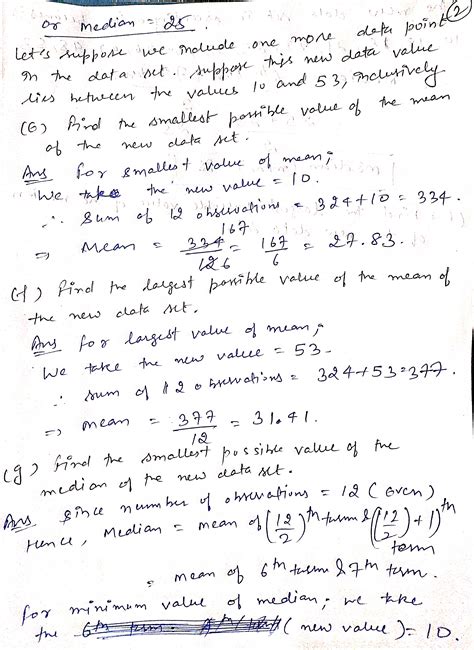 2
or median = 25.
Let's suppose we include one more data point
in the data set. suppose this new data value
lies between the values 10 and 53, inclusively
(e) Find the smallest possible value of the mean
of the new data set.
Ans for smallest value of mean;
We take the new value = 10.
∴ Sum of 12 observations = 324+10 = 334.
⇒ Mean = 334/12 = 167/6 = 27.83.
167
6
(f) Find the largest possible value of the mean of
the new data set.
Ans for largest value of mean;
We take the new value = 53.
∴ sum of 12 observations = 324+53=377.
⇒ mean = 377/12 = 31.41.
(g) find the smallest possible value of the
median of the new data set.
Ans Since number of observations = 12 (even)
Hence, Median = mean of (12/2)th term & ((12/2)+1)th
term
= mean of 6th term & 7th term.
for minimum value of median; we take
the (new value) = 10.